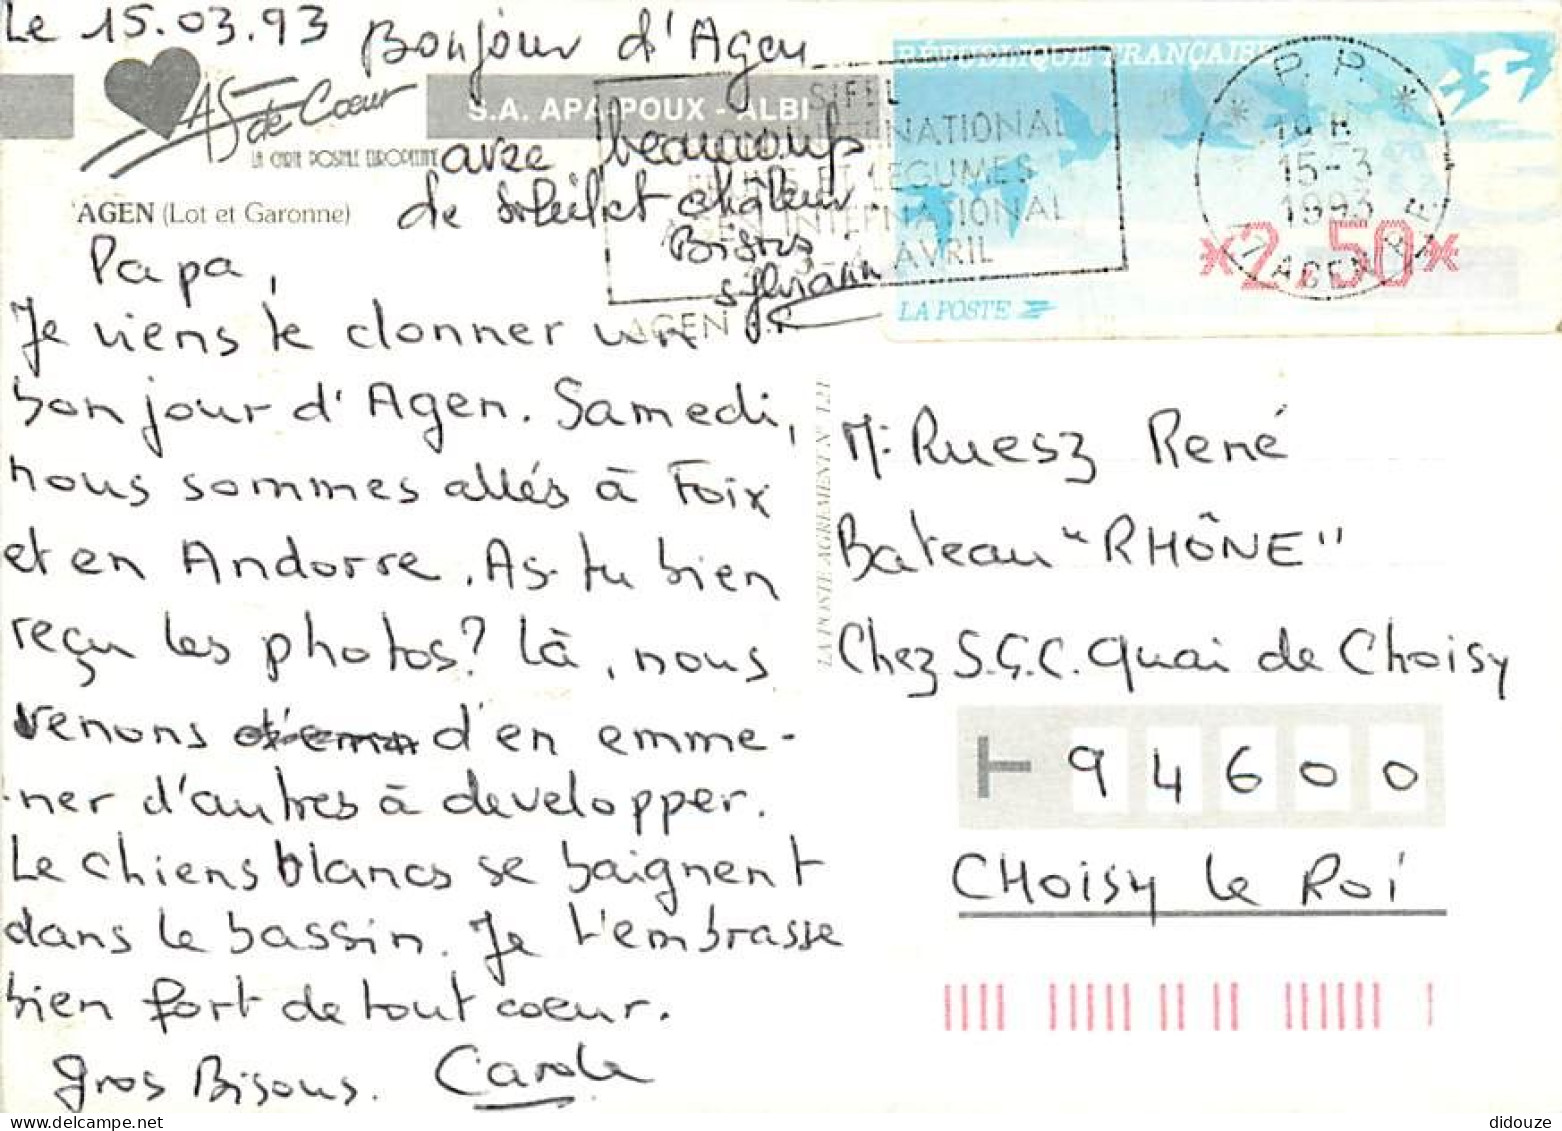 Le 15.03.93
Bonjour d'Agen
avec beaucoup
de soleil et chaleur.
Bisous
Sylviane
AS de Cœur
LA CARTE POSTALE EUROPEENNE
S.A. APA-POUX - ALBI
AGEN (Lot et Garonne)
Papa,
Je viens te donner un
bonjour d'Agen. Samedi,
nous sommes allés à Foix
et en Andorre. As-tu bien
reçu les photos? Là, nous
venons d'en emme-
ner d'autres à developper.
Le chiens blancs se baignent
dans le bassin. Je t'embrasse
bien fort de tout coeur.
gros Bisous. Carole
RÉPUBLIQUE FRANÇAISE
LA POSTE
*2,50*
P. P.
19 H
15-3
1993
AGEN
SIFEL
INTERNATIONAL
ET LEGUMES
INTERNATIONAL
AVRIL
AGEN
LA POSTE AGREMENT N° 121
Mr Ruesz René
Bateau "RHÔNE"
Chez S.G.C. Quai de Choisy
94600
CHoisy le Roi
didouze